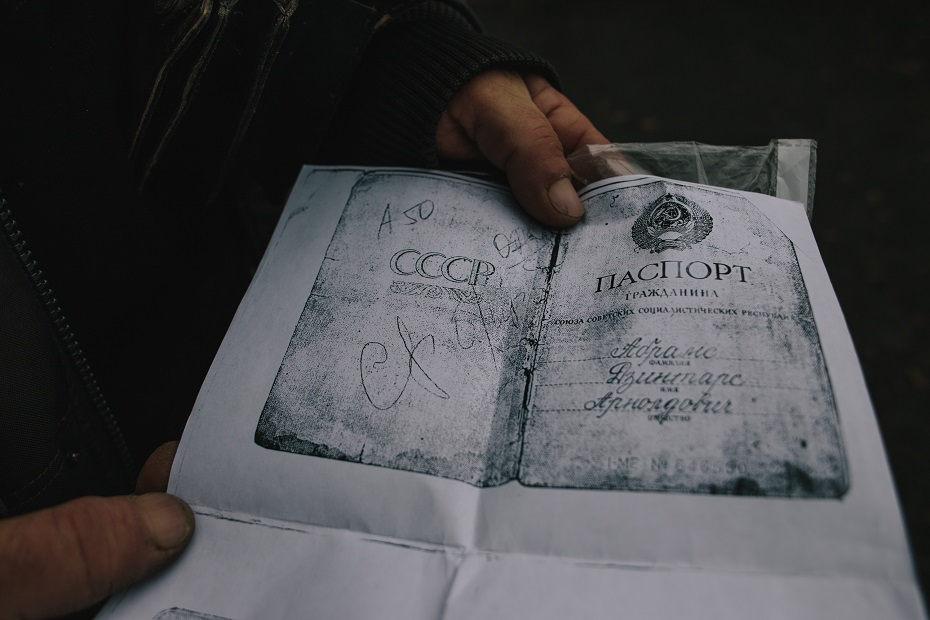 А 50
СССР
ПАСПОРТ
ГРАЖДАНИНА
СОЮЗА СОВЕТСКИХ СОЦИАЛИСТИЧЕСКИХ РЕСПУБЛИК
Абрамс
ФАМИЛИЯ
Дзинтарс
ИМЯ
Арнолдович
ОТЧЕСТВО